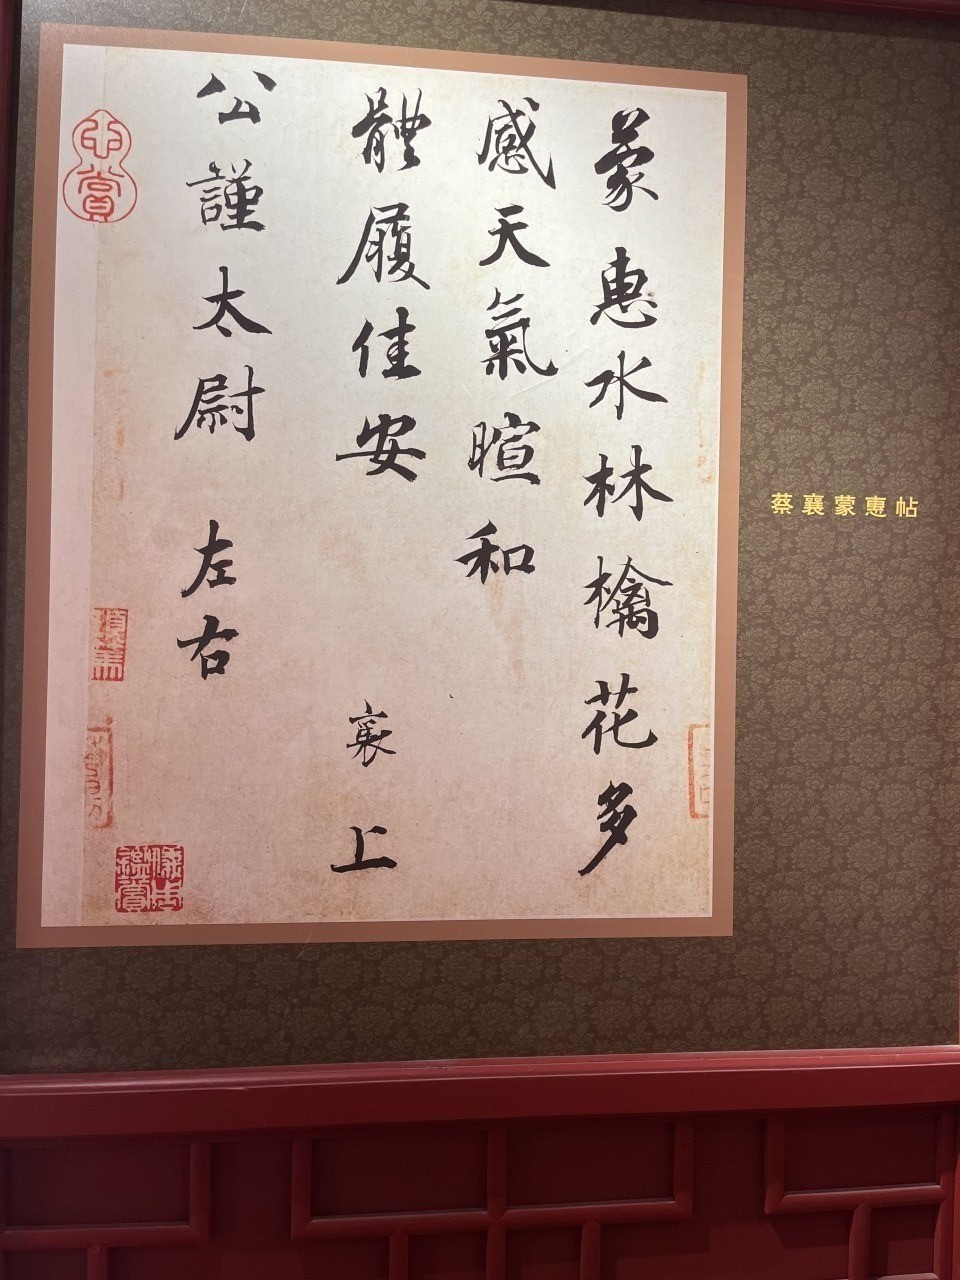 蒙惠水林檎花多
感天氣暄和
體履佳安 襄上
公謹太尉 左右
蔡襄蒙惠帖